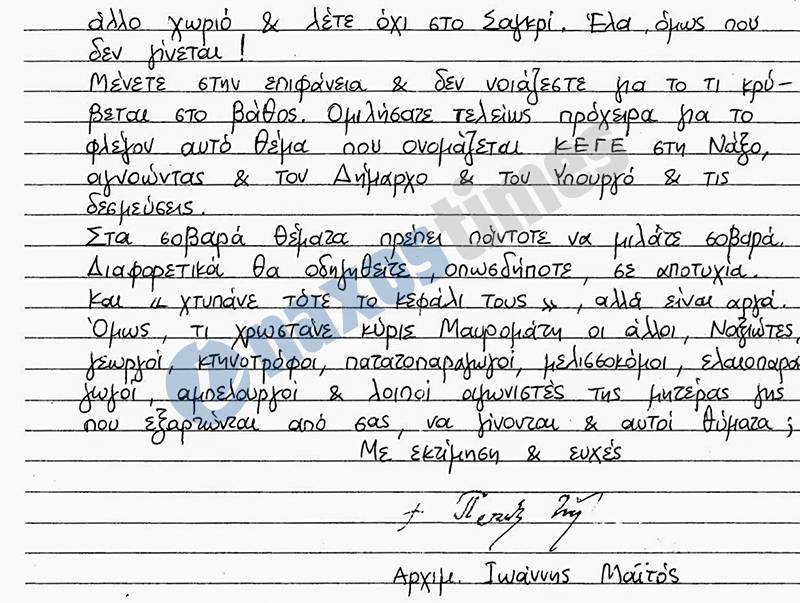 άλλο χωριό & λέτε όχι στο Σαγκρί. Έλα, όμως που
δεν γίνεται!
Μένετε στην επιφάνεια & δεν νοιάζεστε για το τι κρύ-
βεται στο βάθος. Ομιλήσατε τελείως πρόχειρα για το
φλέγον αυτό θέμα που ονομάζεται ΚΕΓΕ στη Νάξο,
αγνοώντας & τον Δήμαρχο & τον Υπουργό & τις
δεσμεύσεις.
Στα σοβαρά θέματα πρέπει πάντοτε να μιλάτε σοβαρά.
Διαφορετικά θα οδηγηθείτε, οπωσδήποτε, σε αποτυχία.
Και « χτυπάνε τότε το κεφάλι τους », αλλά είναι αργά.
Όμως, τι χρωστάνε κύριε Μαυρομάτη οι άλλοι, Ναξιώτες,
γεωργοί, κτηνοτρόφοι, πατατοπαραγωγοί, μελισσοκόμοι, ελαιοπαρα
γωγοί, αμπελουργοί & λοιποί αγωνιστές της μητέρας γης
που εξαρτώνται από σας, να γίνονται & αυτοί θύματα;
Με εκτίμηση & ευχές
Αρχιμ. Ιωάννης Μαϊτός
naxostimes